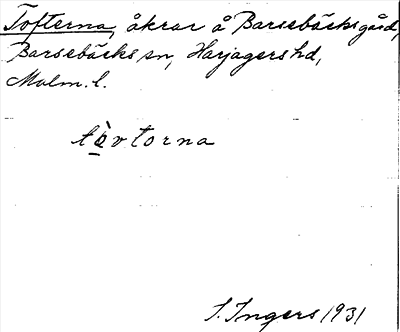 Tofterna, åkrar å Barsebäcks gård,
Barsebäcks sn, Harjagers hd,
Malm. l.
tòvtorna
I. Ingers 1931